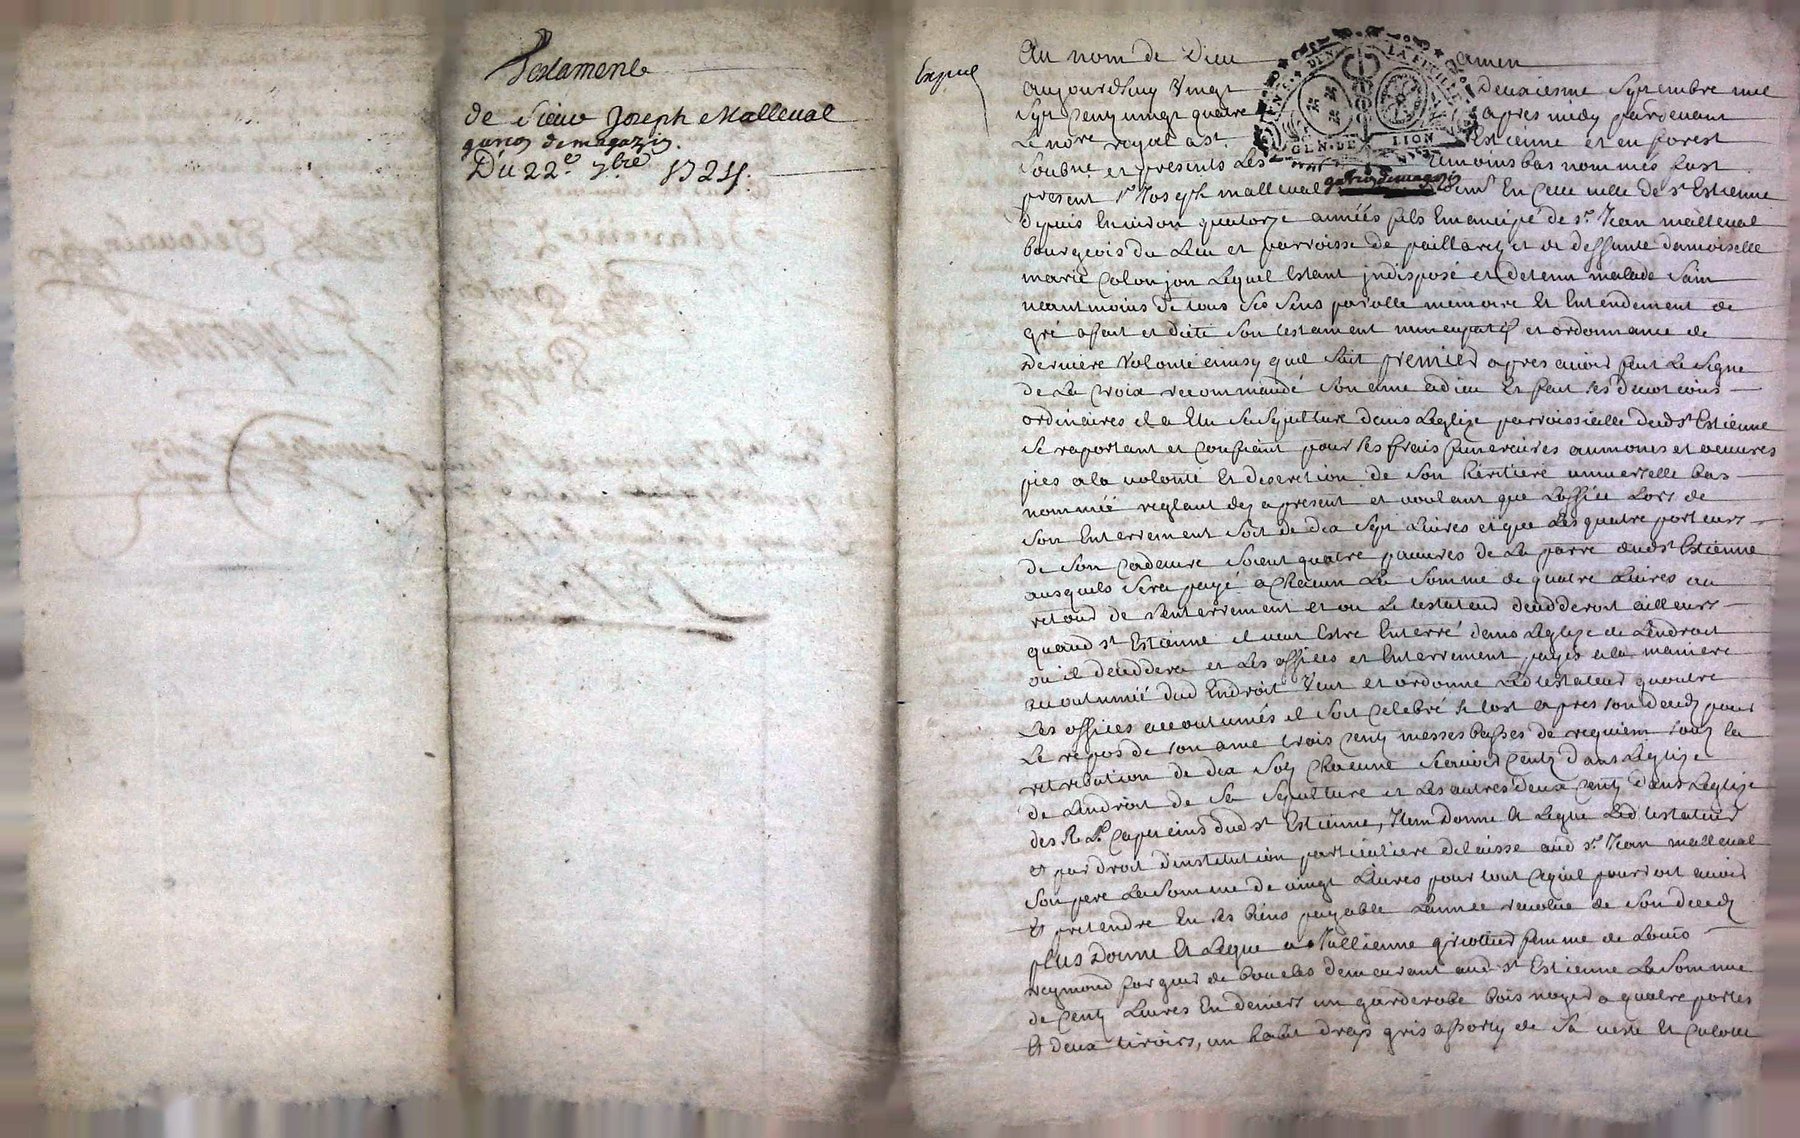 Testament
de Sieur Joseph Malleval
garçon de magazin.
Du 22e. 7bre 1724.
Expié
Au nom de Dieu amen
aujourdhuy Vingt Deuxiesme Septembre mil
Sept Cent vingt quatre apres midy pardevant
Le nore royal a st. Estienne et en forest
Soubné et presents Les temoins bas nommés fust
present sr. Joseph malleval garçon de magazin demt. En cette ville de st Estienne
depuis Environ quatorze années fils Emancipé de sr. Jean malleval
bourgeois du Lieu et parroisse de et de deffunte damoiselle
marie Colonjon Lequel Estant jndisposé et detenu malade Sain
neantmoins de tous Ses Sens parolle memoire Et Entendement de
gré a fait et dicté Son testament nuncupatif et ordonnance de
derniere Volonté einsy quil Suit premier apres avoir fait Le Signe
de La Croix recommandé Son ame a dieu Et fait Ses devotions
ordinaires il a Elu Sa Sepulture dans Leglize parroissielle dud st Estienne
Se raportant et Confiant pour Ses frais funeraires aumones et oeuvres
pies a la volonté Et discretion de Son héritiere universelle bas
nommée reglant dez a present et voulant que Loffice Lors de
Son Enterrement Soit de dix Sept Livres et que Les quatre porteurs
de Son Cadavre Soient quatre pauvres de La parre dud st Estienne
ausquels Sera payé a Chacun La Somme de quatre Livres au
retour de Lenterrement et ou Le testateur decederoit ailleurs
quaud st Estienne il veut Estre Enterré dans Leglize de Lendroit
ou il decedera et Les offices et Enterrement payés a la maniere
accoutumée dud Endroit Veut et ordonne Led testateur quoutre
Les offices accoutumés il Soit Celebré Si tost apres son deceds pour
Le repos de son ame trois Cents messes basses de requiem sous la
retribution de dix Sols Chacune Scavoir Cents dans Leglize
de Lendroit de Sa Sepulture et Les autres deux Cents dans Leglize
des R Ps. Capucins dud st Estienne, Item Donne Et Legue Led testateur
et par droit dinstitution particuliere delaisse aud sr. Jean malleval
Son pere La Somme de vingt Livres pour tout Ce quil pourroit avoir
Et pretendre En Ses biens payable Lannée revolue de Son deceds
plus Donne Et Legue a Jullienne femme de Louis
Reymond forgeur de boucles demeurant aud st Estienne La Somme
de Cents Livres En deniers un garderobe bois noyer a quatre portes
Et deux tiroirs, un habit drap gris assorty de Sa veste Et Culotte